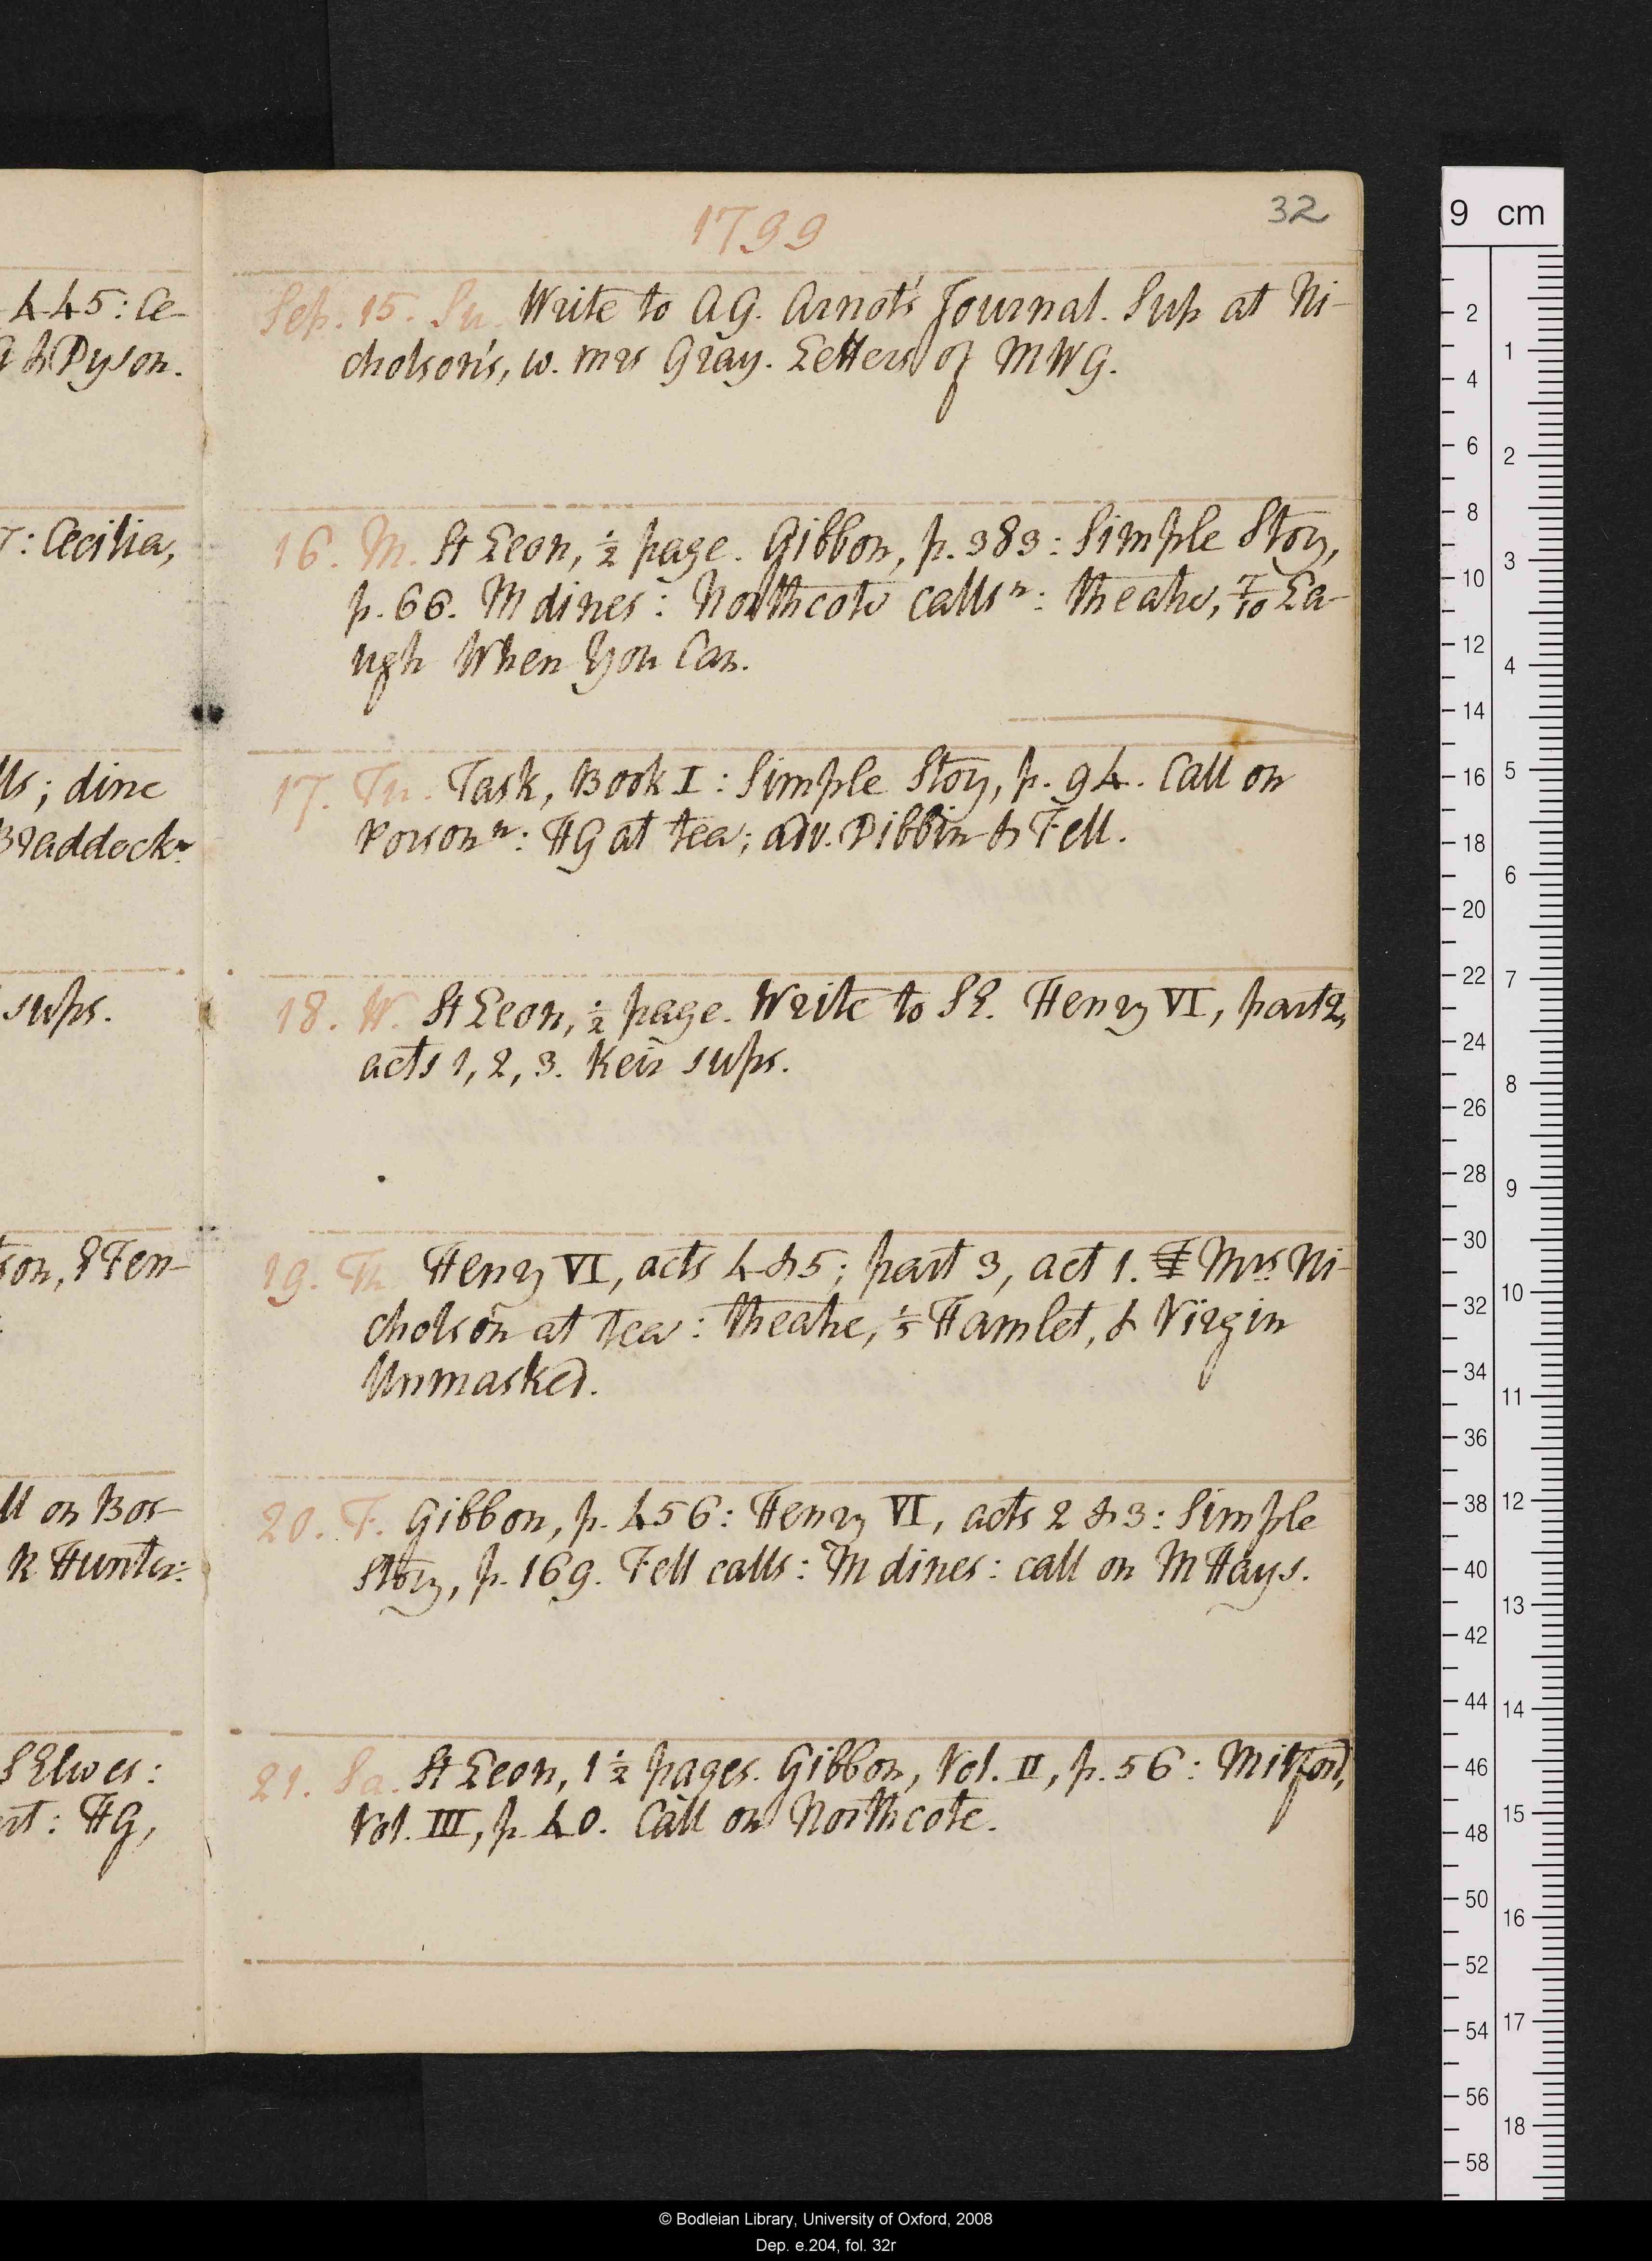 32
1799
445: Ce-
& Dyson.
Sep. 15. Su. Write to AG. Arnot's Journal. Sup at Ni-
cholson's, w. mrs Gray. Letters of MWG.
: Cecilia,
16. M. St Leon, ½ page. Gibbon, p. 383: Simple Story,
p. 66. M dines: Northcote calls n: theatre, 7/10 La-
ugh When You Can.
lls; dine
Braddock n.
17. Tu. Task, Book I: Simple Story, p. 94. Call on
Porson n: HG at tea; adv. Dibbin & Fell.
sups.
18. W. St Leon, ½ page. Write to SE. Henry VI, part 2,
acts 1, 2, 3. Keir sups.
son, & Fen-
19. Th. Henry VI, acts 4 & 5; part 3, act 1. Mrs Ni-
cholson at tea: theatre, 1/5 Hamlet, & Virgin
Unmasked.
ll on Bos-
R Hunter:
20. F. Gibbon, p. 456: Henry VI, acts 2 & 3: Simple
Story, p. 169. Fell calls: M dines: call on M Hays.
S Elwes:
HG,
21. Sa. St Leon, 1 ½ pages. Gibbon, Vol. II, p. 56: Mitford,
Vol. III, p. 40. Call on Northcote.
9 cm
2 4 6 8 10 12 14 16 18 20 22 24 26 28 30 32 34 36 38 40 42 44 46 48 50 52 54 56 58
1 2 3 4 5 6 7 8 9 10 11 12 13 14 15 16 17 18
© Bodleian Library, University of Oxford, 2008
Dep. e.204, fol. 32r